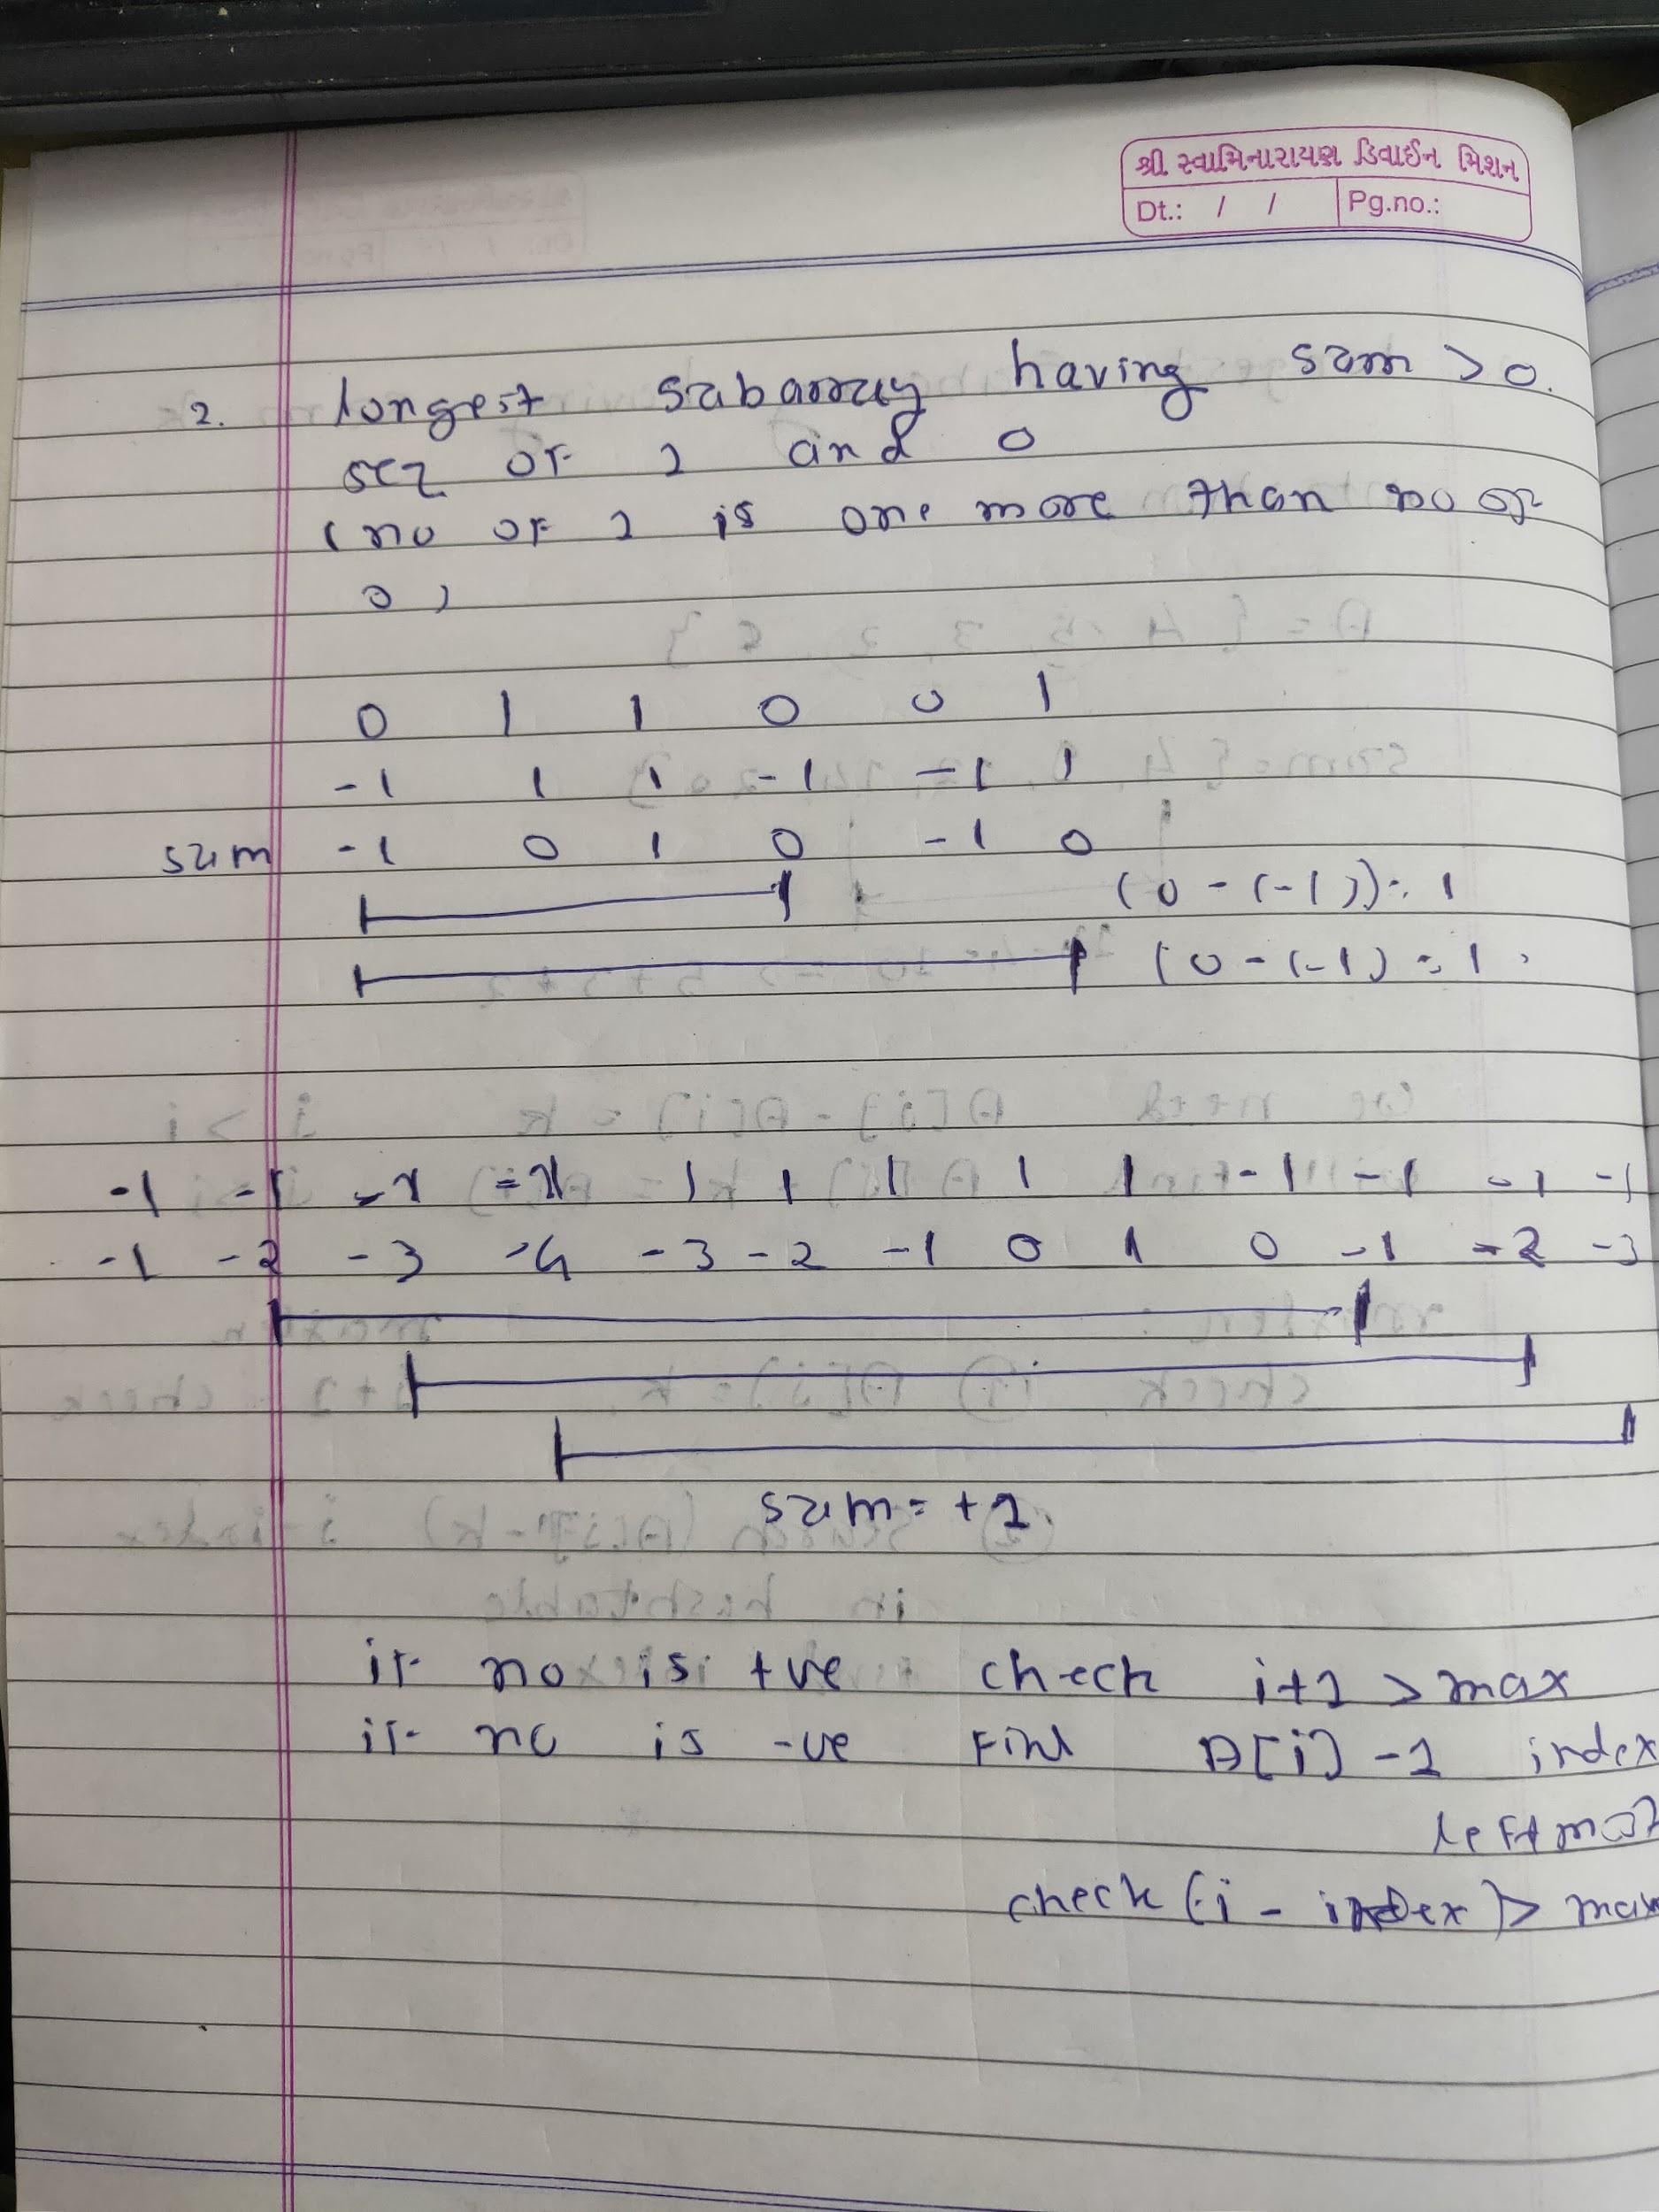 શ્રી સ્વામિનારાયણ ડિવાઈન મિશન
Dt.: / / Pg.no.:
2. longest subarray having sum > 0.
seq of 1 and 0
(no of 1 is one more than no of
0)
0 1 1 0 0 1
-1 1 1 -1 -1 1
sum -1 0 1 0 -1 0
(0 - (-1)) = 1
(0 - (-1) = 1.
-1 -1 -1 -1 1 1 1 1 1 -1 -1 -1 -1
-1 -2 -3 -4 -3 -2 -1 0 1 0 -1 -2 -3
sum = +1
if no is +ve check i+1 > max
if no is -ve find A[i] -1 index
check (i - index) > max